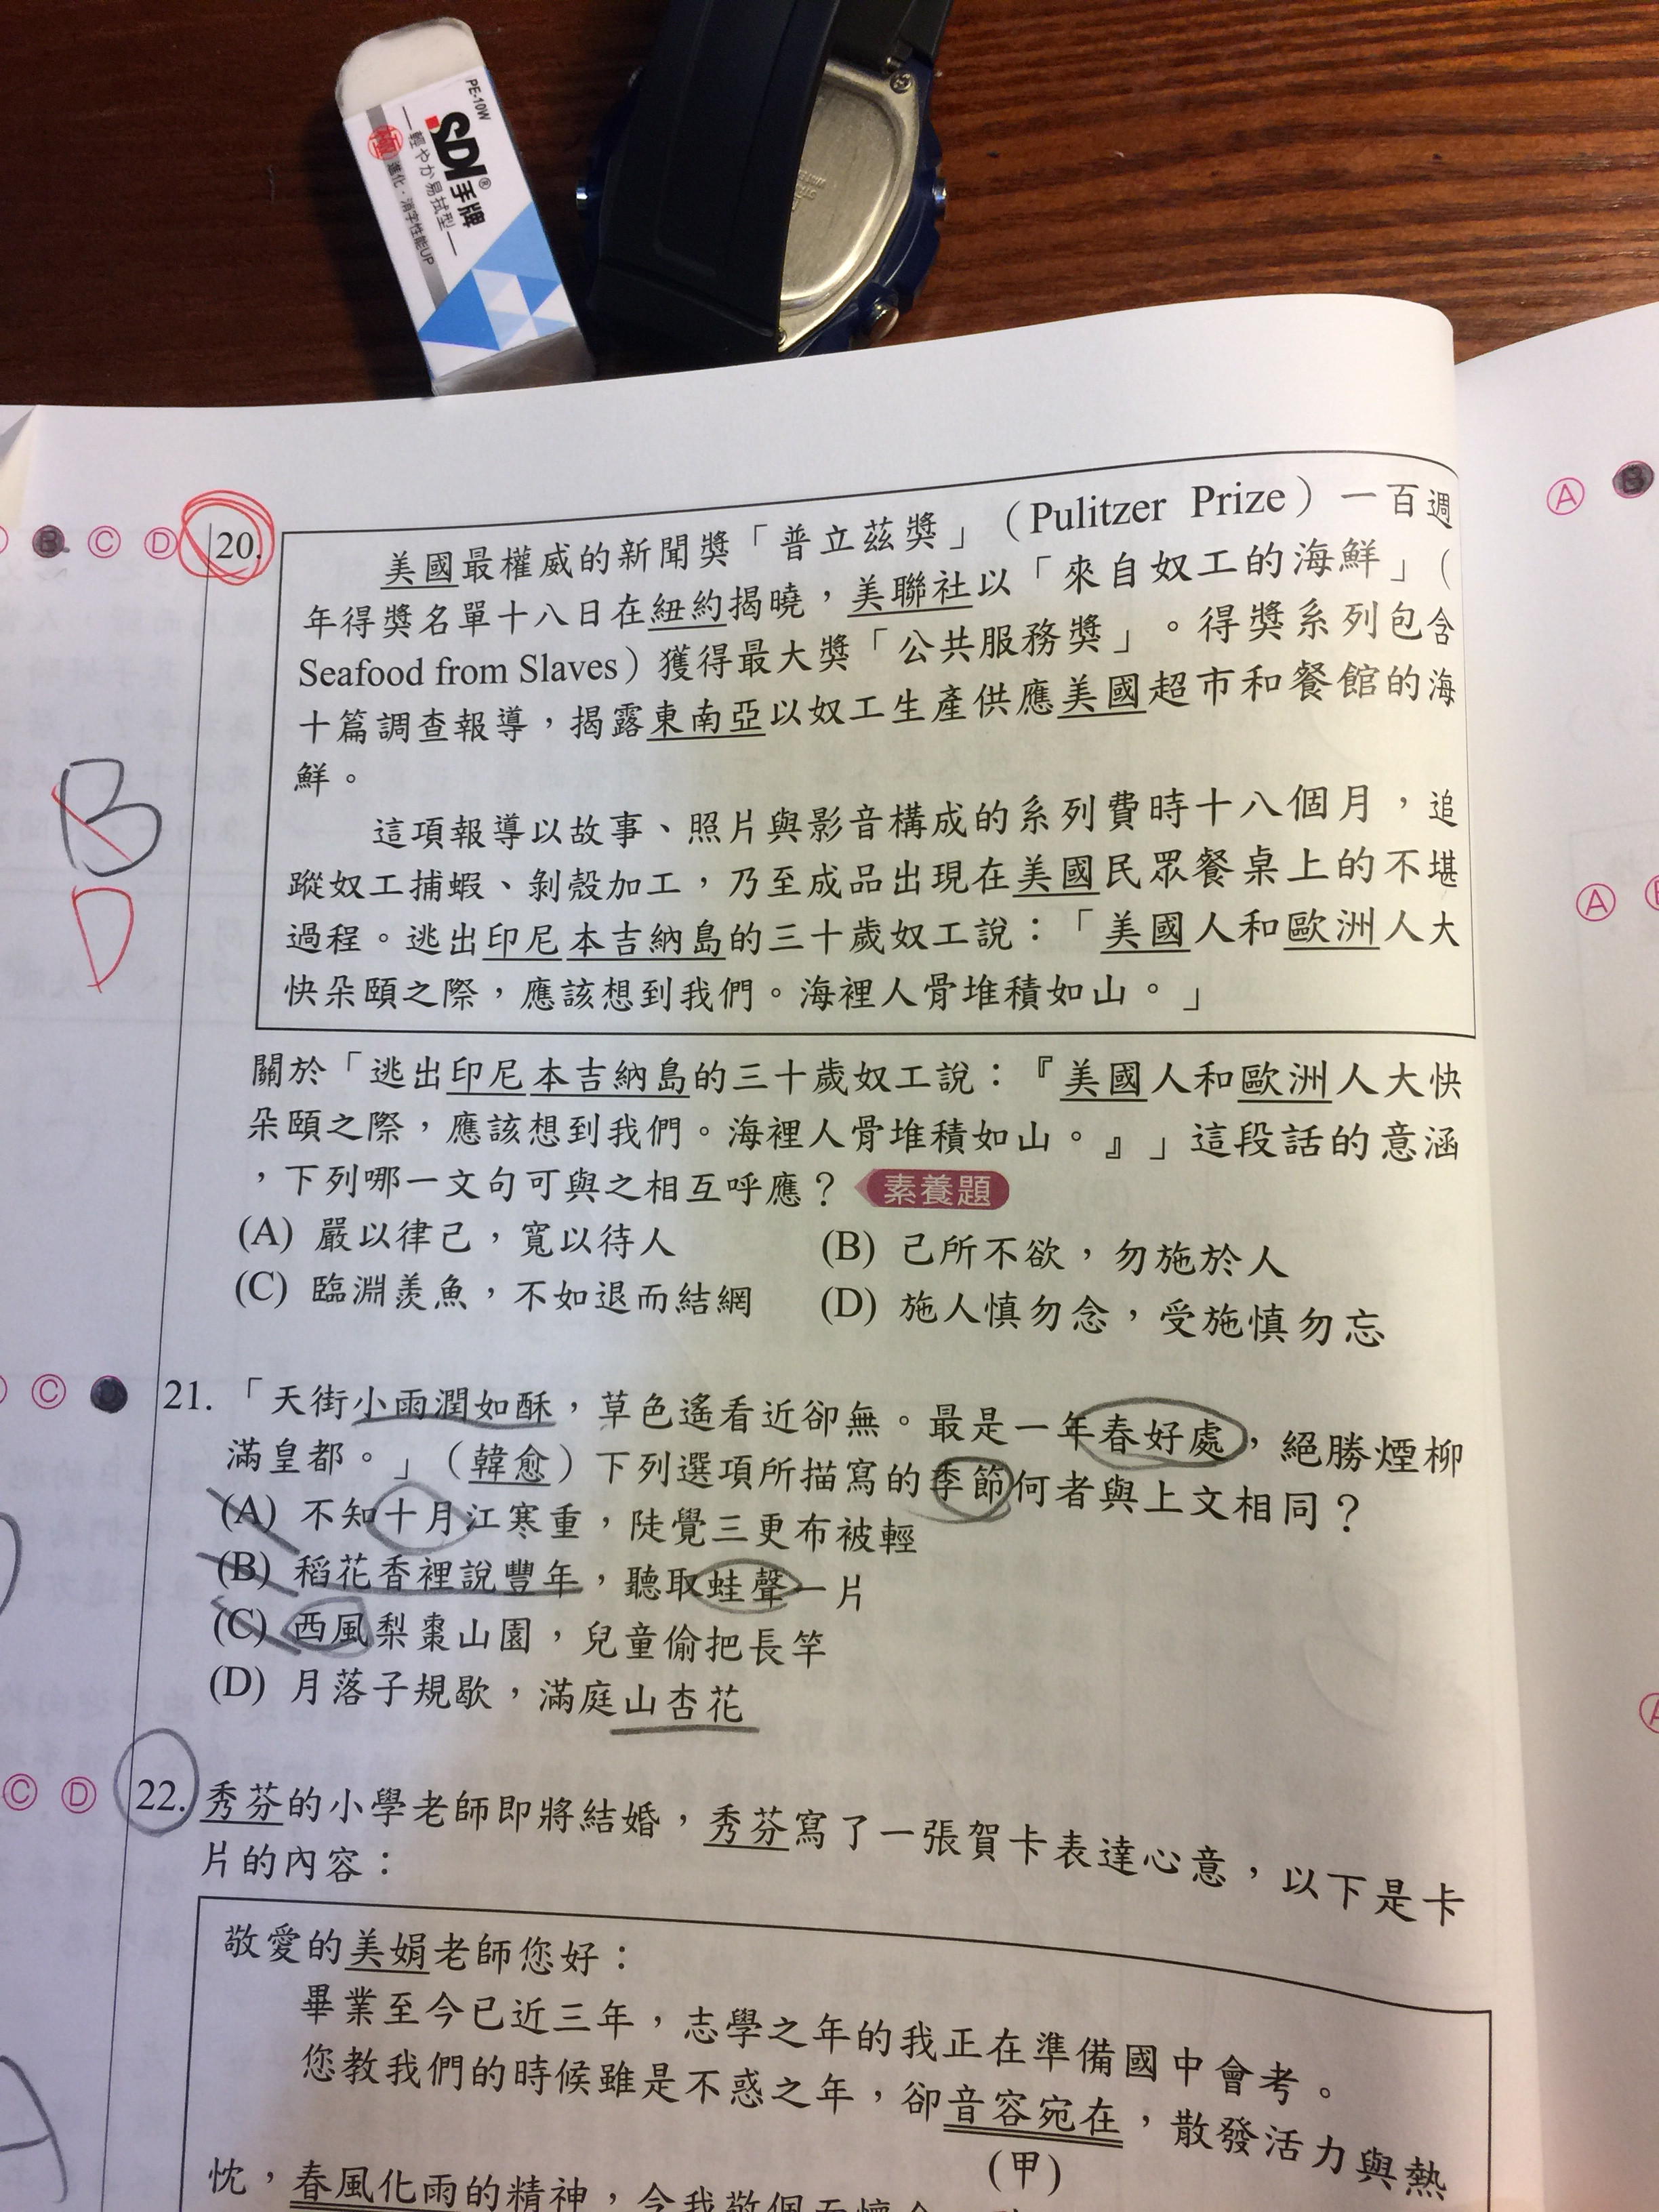 PE-10W
SDI®手牌
輕やか易拭型
極 進化・消字性能UP
B C D 20.
美國最權威的新聞獎「普立茲獎」（Pulitzer Prize）一百週
年得獎名單十八日在紐約揭曉，美聯社以「來自奴工的海鮮」（
Seafood from Slaves）獲得最大獎「公共服務獎」。得獎系列包含
十篇調查報導，揭露東南亞以奴工生產供應美國超市和餐館的海
鮮。
這項報導以故事、照片與影音構成的系列費時十八個月，追
蹤奴工捕蝦、剝殼加工，乃至成品出現在美國民眾餐桌上的不堪
過程。逃出印尼本吉納島的三十歲奴工說：「美國人和歐洲人大
快朵頤之際，應該想到我們。海裡人骨堆積如山。」
B
D
關於「逃出印尼本吉納島的三十歲奴工說：『美國人和歐洲人大快
朵頤之際，應該想到我們。海裡人骨堆積如山。』」這段話的意涵
，下列哪一文句可與之相互呼應？ 素養題
(A) 嚴以律己，寬以待人 (B) 己所不欲，勿施於人
(C) 臨淵羨魚，不如退而結網 (D) 施人慎勿念，受施慎勿忘
C 21. 「天街小雨潤如酥，草色遙看近卻無。最是一年春好處，絕勝煙柳
滿皇都。」（韓愈）下列選項所描寫的季節何者與上文相同？
(A) 不知十月江寒重，陡覺三更布被輕
(B) 稻花香裡說豐年，聽取蛙聲一片
(C) 西風梨棗山園，兒童偷把長竿
(D) 月落子規歇，滿庭山杏花
C D 22. 秀芬的小學老師即將結婚，秀芬寫了一張賀卡表達心意，以下是卡
片的內容：
敬愛的美娟老師您好：
畢業至今已近三年，志學之年的我正在準備國中會考。
您教我們的時候雖是不惑之年，卻音容宛在，散發活力與熱
(甲)
忱，春風化雨的精神，令我敬佩
A B
A